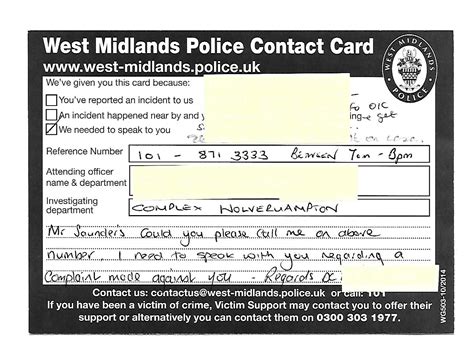 West Midlands Police Contact Card
www.west-midlands.police.uk
WEST MIDLANDS POLICE
We've given you this card because:
You've reported an incident to us
An incident happened near by and y ing get
We needed to speak to you
Reference Number 101 - 871 3333 Between 7am - 8pm
Attending officer name & department
Investigating department COMPLEX WOLVERHAMPTON
Mr Saunders Could you please call me on above
number. I need to speak with you regarding a
Complaint made against you - Regards DC
Contact us: contactus@west-midlands.police.uk or call: 101
If you have been a victim of crime, Victim Support may contact you to offer their
support or alternatively you can contact them on 0300 303 1977.
WG503-10/2014